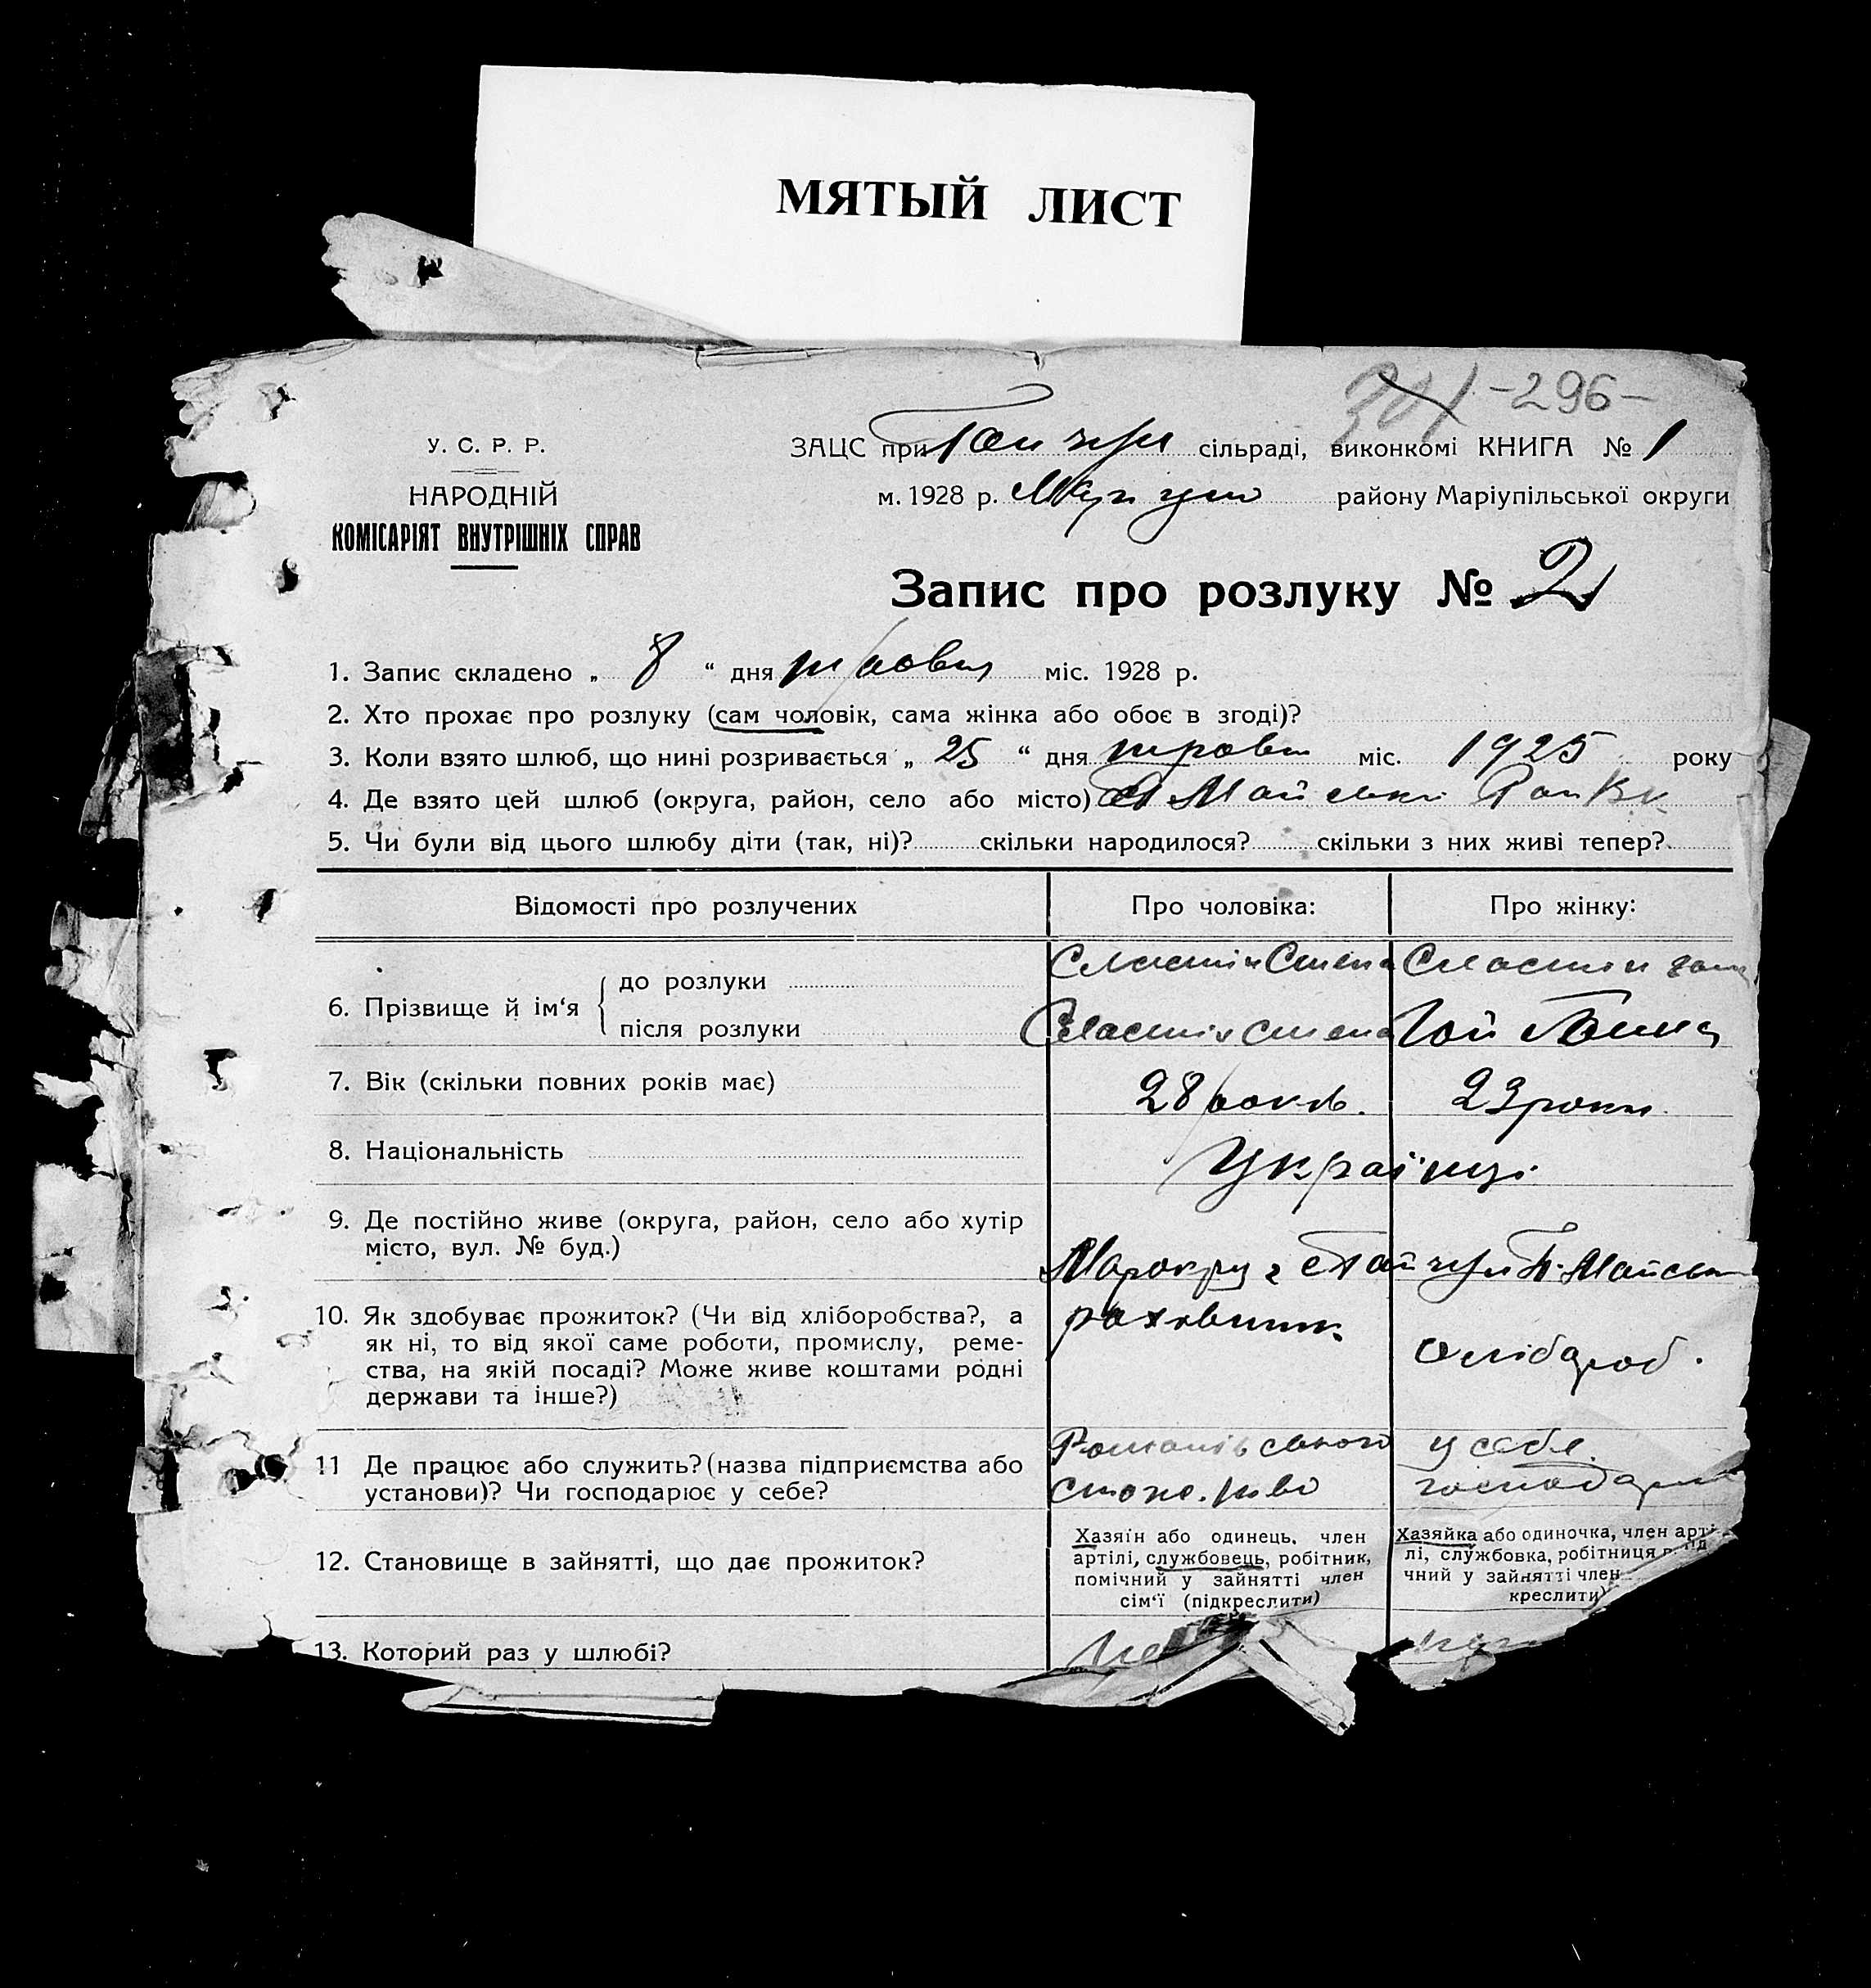 МЯТЫЙ ЛИСТ
301 -296-
У. С. Р. Р.
НАРОДНІЙ
КОМІСАРІЯТ ВНУТРІШНІХ СПРАВ
ЗАЦС при сільраді, виконкомі КНИГА № 1
м. 1928 р. района Маріупільської округи
Запис про розлуку № 2
1. Запис складено „ 8 “ дня травня міс. 1928 р.
2. Хто прохає про розлуку (сам чоловік, сама жінка або обоє в згоді)?
3. Коли взято шлюб, що нині розривається „ 25 “ дня травня міс. 1925 року
4. Де взято цей шлюб (округа, район, село або місто)
5. Чи були від цього шлюбу діти (так, ні)? скільки народилося? скільки з них живі тепер?
Відомості про розлучених Про чоловіка: Про жінку:
6. Прізвище й ім‘я { до розлуки Сластін Степа Сластін
після розлуки Сластін Степа Гой
7. Вік (скільки повних років має) 28 років. 23 роки.
8. Національність Українці
9. Де постійно живе (округа, район, село або хутір
місто, вул. № буд.)
10. Як здобуває прожиток? (Чи від хліборобства?, а
як ні, то від якої саме роботи, промислу, реме-
ства, на якій посаді? Може живе коштами рідні
держави та інше?)
рахівник
хлібороб.
11 Де працює або служить? (назва підприємства або
установи)? Чи господарює у себе?
Романівського
спож. т-во
у себе
12. Становище в зайнятті, що дає прожиток?
Хазяїн або одинець. член
артілі, службовець, робітник,
помічний у зайнятті член
сім‘ї (підкреслити)
Хазяйка або одиночка, член арті-
лі, службовка, робітниця
чний у зайнятті член
креслити)
13. Которий раз у шлюбі?